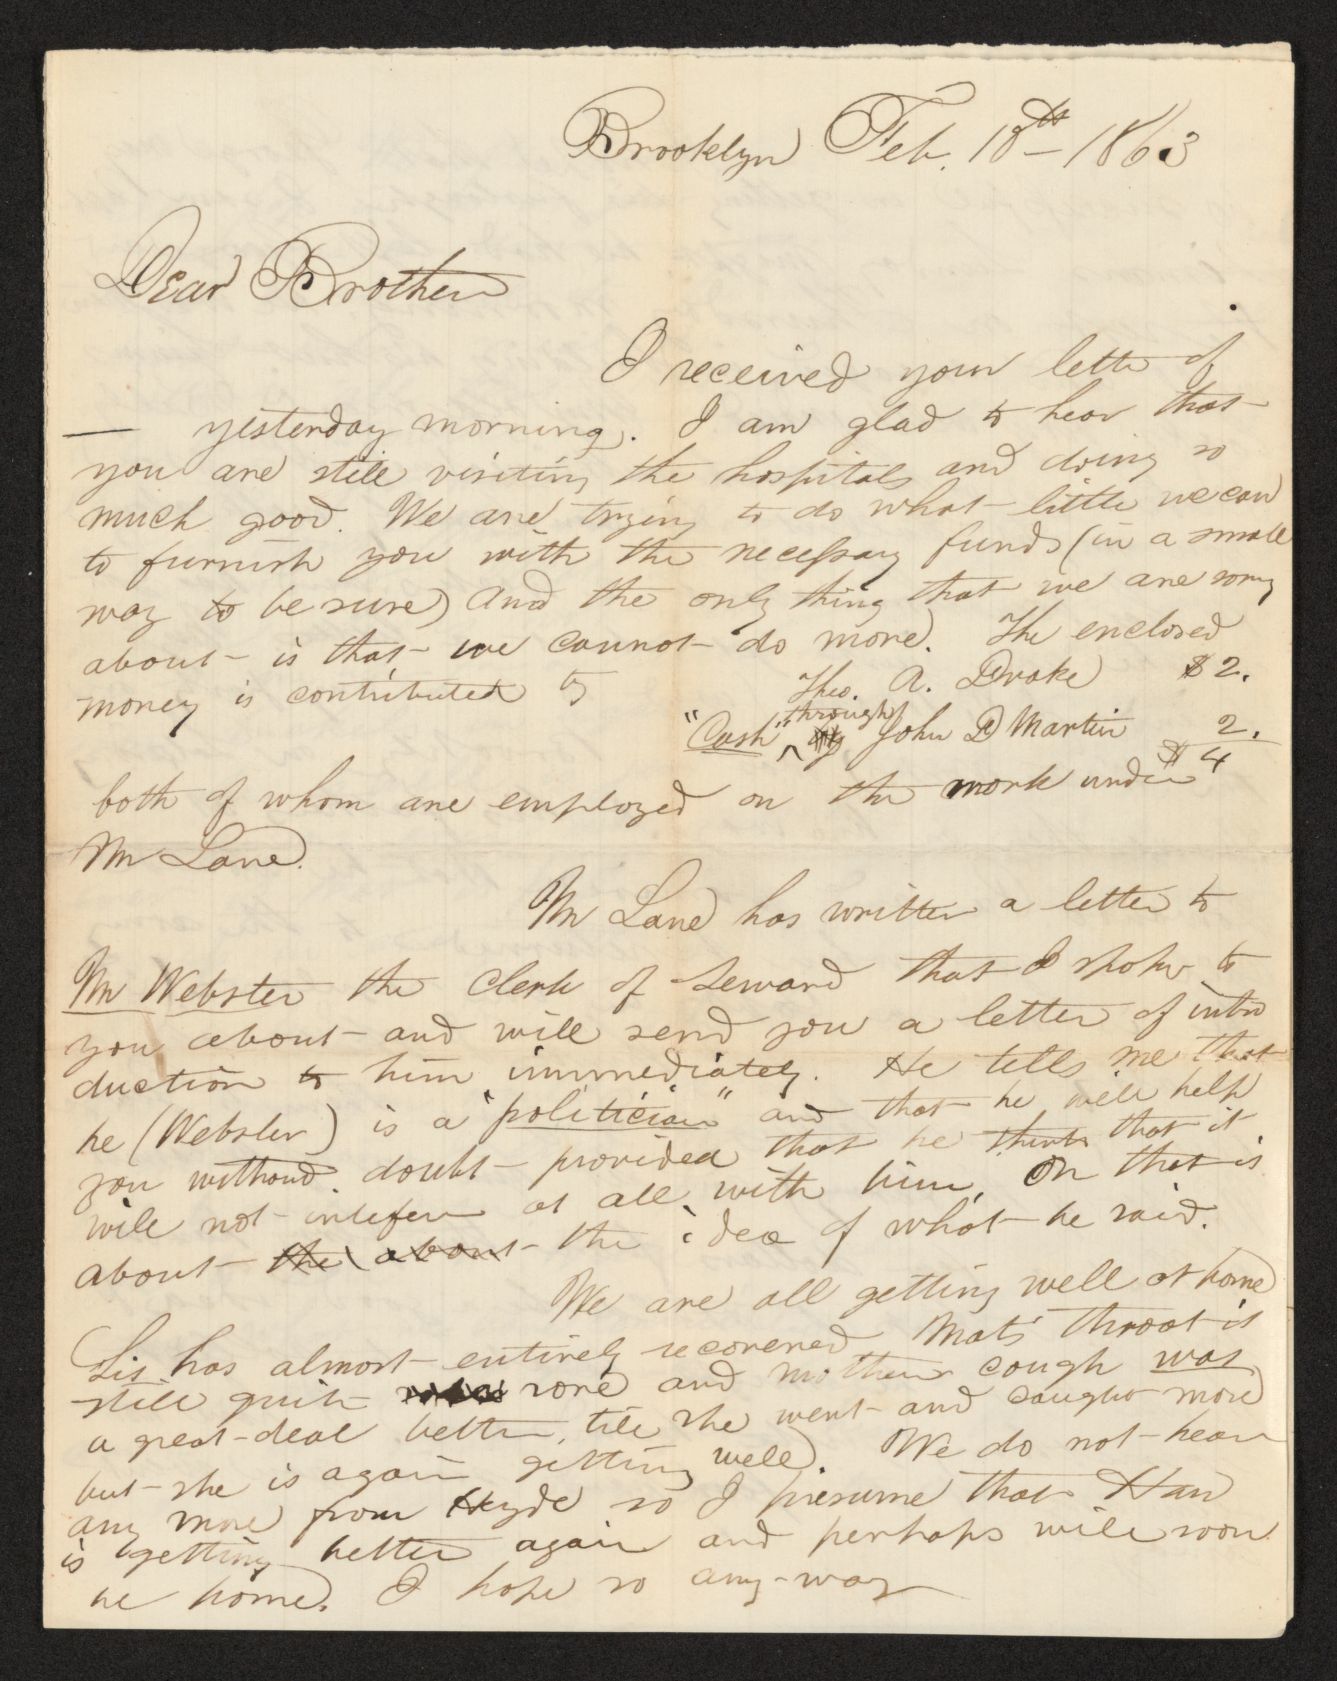 Brooklyn Feb. 18th – 1863
Dear Brother
I received your lette of
— yesterday morning. I am glad to hear that
you are still visiting the hospitals and doing so
much good. We are trying to do what little we can
to furnish you with the necessary funds (in a small
way to be sure) and the only thing that we are sorry
about is that we cannot do more. The enclosed
money is contributed by
Theo. A. Drake $2.
through
"Cash" by John D Martin 2.
$4
both of whom are employed on the work under
Mr Lane.
Mr Lane has written a letter to
Mr Webster the clerk of Seward that I spoke to
you about and will send you a letter of intro
duction to him immediately. He tells me that
he (Webster) is a "politician" and that he will help
you without doubt provided that he thinks that it
will not interfere at all with him, Or that is
about the about the idea of what he said.
We are all getting well at home
Sis has almost entirely recovered Mat's throat is
still quite sore and mothers cough was
a great deal better, till she went and caught more
but she is again getting well. We do not hear
any more from Hyde so I presume that Han
is getting better again and perhaps will soon
be home. I hope so any-way